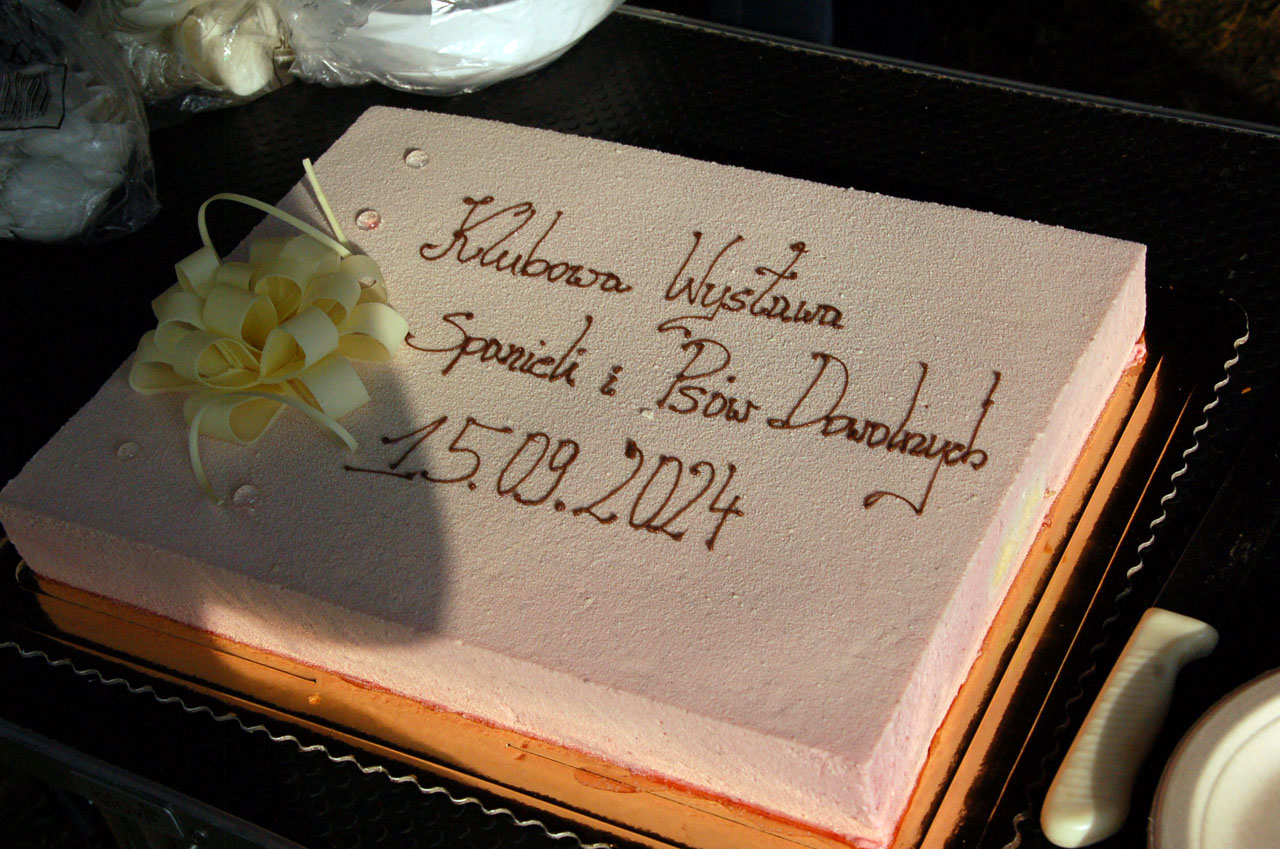 Klubowa Wystawa
Spanieli i Psów Dowolnych
15.09.2024